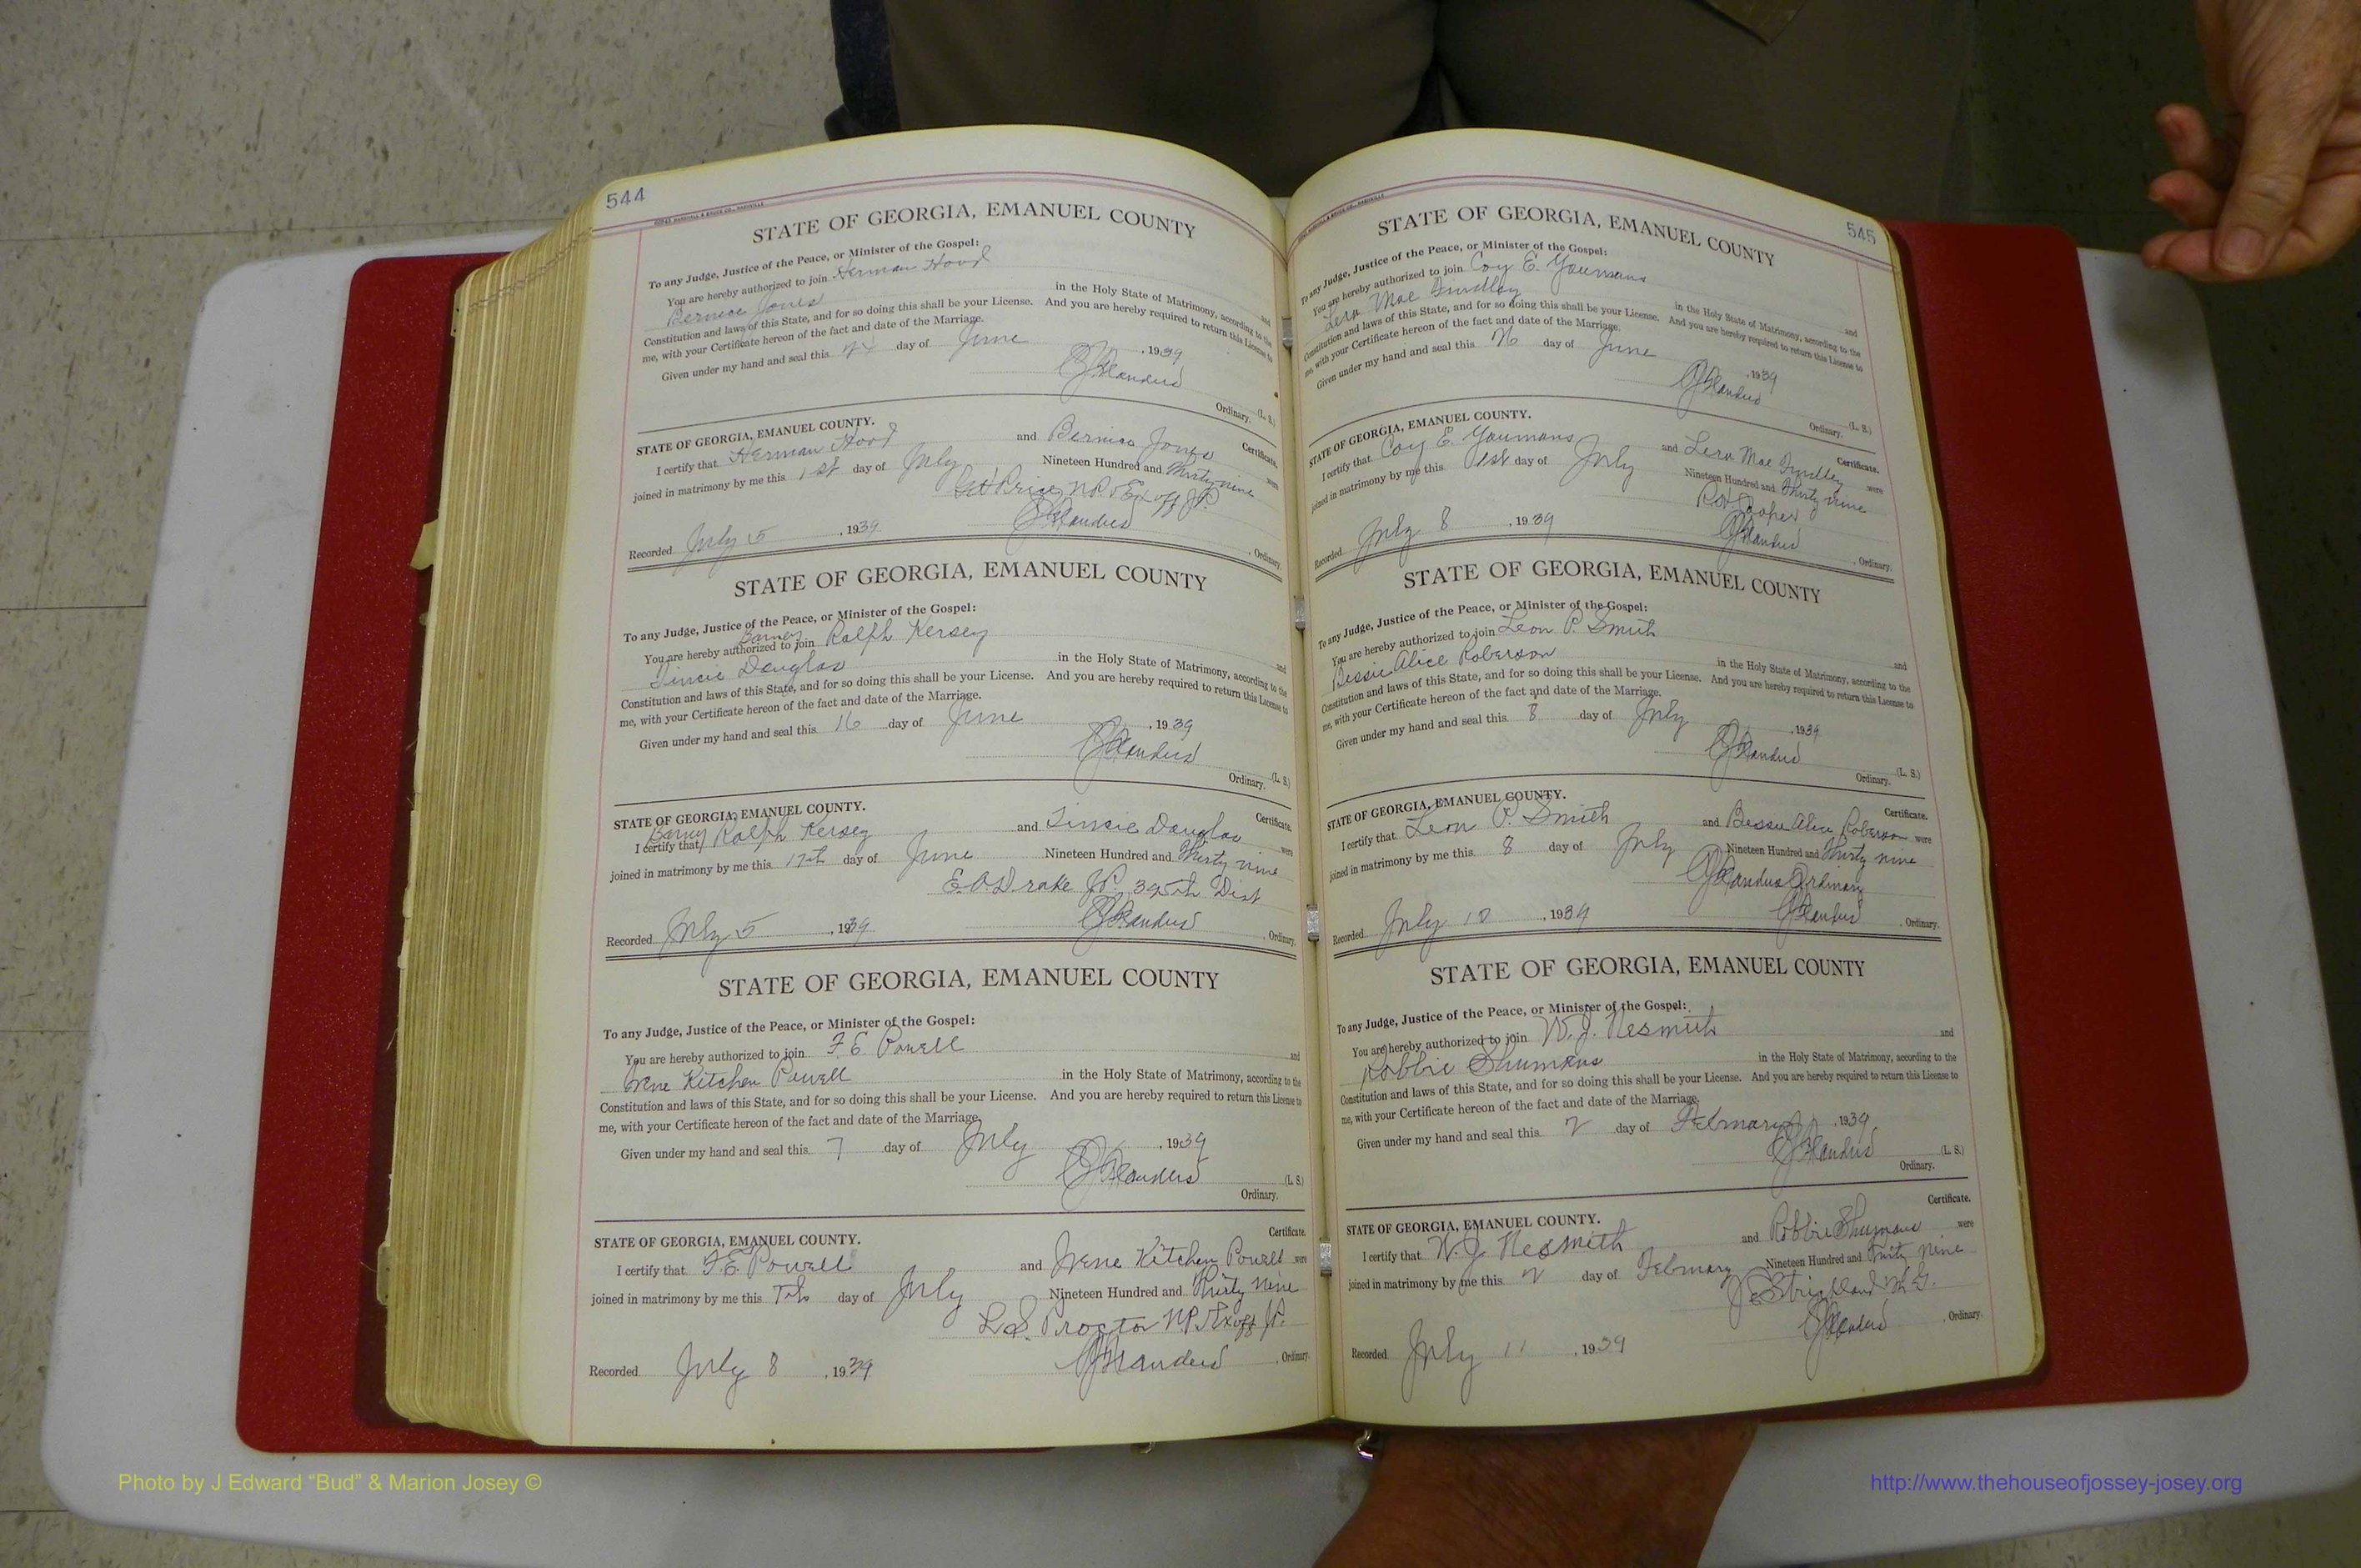 544
STATE OF GEORGIA, EMANUEL COUNTY
To any Judge, Justice of the Peace, or Minister of the Gospel:
You are hereby authorized to join Herman Hood and
Bernice Jones in the Holy State of Matrimony, according to the
Constitution and laws of this State, and for so doing this shall be your License. And you are hereby required to return this License to
me, with your Certificate hereon of the fact and date of the Marriage.
Given under my hand and seal this day of June , 1939
(L. S.)
Ordinary.
STATE OF GEORGIA, EMANUEL COUNTY. Certificate.
I certify that Herman Hood and Bernice Jones were
joined in matrimony by me this 1st day of July Nineteen Hundred and Thirty nine
Price, N.P. & Ex off J.P.
Recorded July 5 , 1939 , Ordinary.
STATE OF GEORGIA, EMANUEL COUNTY
To any Judge, Justice of the Peace, or Minister of the Gospel:
You are hereby authorized to join Barney Ralph Kersey and
Douglas in the Holy State of Matrimony, according to the
Constitution and laws of this State, and for so doing this shall be your License. And you are hereby required to return this License to
me, with your Certificate hereon of the fact and date of the Marriage.
Given under my hand and seal this 16 day of June , 1939
(L. S.)
Ordinary.
STATE OF GEORGIA, EMANUEL COUNTY. Certificate.
I certify that Barney Ralph Kersey and Douglas were
joined in matrimony by me this 17th day of June Nineteen Hundred and Thirty nine
E. O. Drake J.P. 395th Dist
Recorded July 5 , 1939 , Ordinary.
STATE OF GEORGIA, EMANUEL COUNTY
To any Judge, Justice of the Peace, or Minister of the Gospel:
You are hereby authorized to join F. E. Powell and
Irene Kitchen Powell in the Holy State of Matrimony, according to the
Constitution and laws of this State, and for so doing this shall be your License. And you are hereby required to return this License to
me, with your Certificate hereon of the fact and date of the Marriage.
Given under my hand and seal this 7 day of July , 1939
(L. S.)
Ordinary.
STATE OF GEORGIA, EMANUEL COUNTY. Certificate.
I certify that F. E. Powell and Irene Kitchen Powell were
joined in matrimony by me this 7th day of July Nineteen Hundred and Thirty nine
L. S. Proctor N.P. & Ex off J.P.
Recorded July 8 , 1939 , Ordinary.
545
STATE OF GEORGIA, EMANUEL COUNTY
To any Judge, Justice of the Peace, or Minister of the Gospel:
You are hereby authorized to join Coy E. Youmans and
Lera Mae Findley in the Holy State of Matrimony, according to the
Constitution and laws of this State, and for so doing this shall be your License. And you are hereby required to return this License to
me, with your Certificate hereon of the fact and date of the Marriage.
Given under my hand and seal this 26 day of June , 1939
(L. S.)
Ordinary.
STATE OF GEORGIA, EMANUEL COUNTY. Certificate.
I certify that Coy E. Youmans and Lera Mae Findley were
joined in matrimony by me this 1st day of July Nineteen Hundred and Thirty nine
Cooper
Recorded July 8 , 1939 , Ordinary.
STATE OF GEORGIA, EMANUEL COUNTY
To any Judge, Justice of the Peace, or Minister of the Gospel:
You are hereby authorized to join Leon P. Smith and
Bessie Alice Roberson in the Holy State of Matrimony, according to the
Constitution and laws of this State, and for so doing this shall be your License. And you are hereby required to return this License to
me, with your Certificate hereon of the fact and date of the Marriage.
Given under my hand and seal this 8 day of July , 1939
(L. S.)
Ordinary.
STATE OF GEORGIA, EMANUEL COUNTY. Certificate.
I certify that Leon P. Smith and Bessie Alice Roberson were
joined in matrimony by me this 8 day of July Nineteen Hundred and Thirty nine
Ordinary
Recorded July 10 , 1939 , Ordinary.
STATE OF GEORGIA, EMANUEL COUNTY
To any Judge, Justice of the Peace, or Minister of the Gospel:
You are hereby authorized to join W. J. Nesmith and
Robbie Shumans in the Holy State of Matrimony, according to the
Constitution and laws of this State, and for so doing this shall be your License. And you are hereby required to return this License to
me, with your Certificate hereon of the fact and date of the Marriage.
Given under my hand and seal this 2 day of February , 1939
(L. S.)
Ordinary.
Certificate.
STATE OF GEORGIA, EMANUEL COUNTY.
I certify that W. J. Nesmith and Robbie Shumans were
joined in matrimony by me this 2 day of February Nineteen Hundred and Thirty nine
Strickland M. G.
Recorded July 11 , 1939 , Ordinary.
Photo by J Edward “Bud” & Marion Josey ©
http://www.thehouseofjossey-josey.org